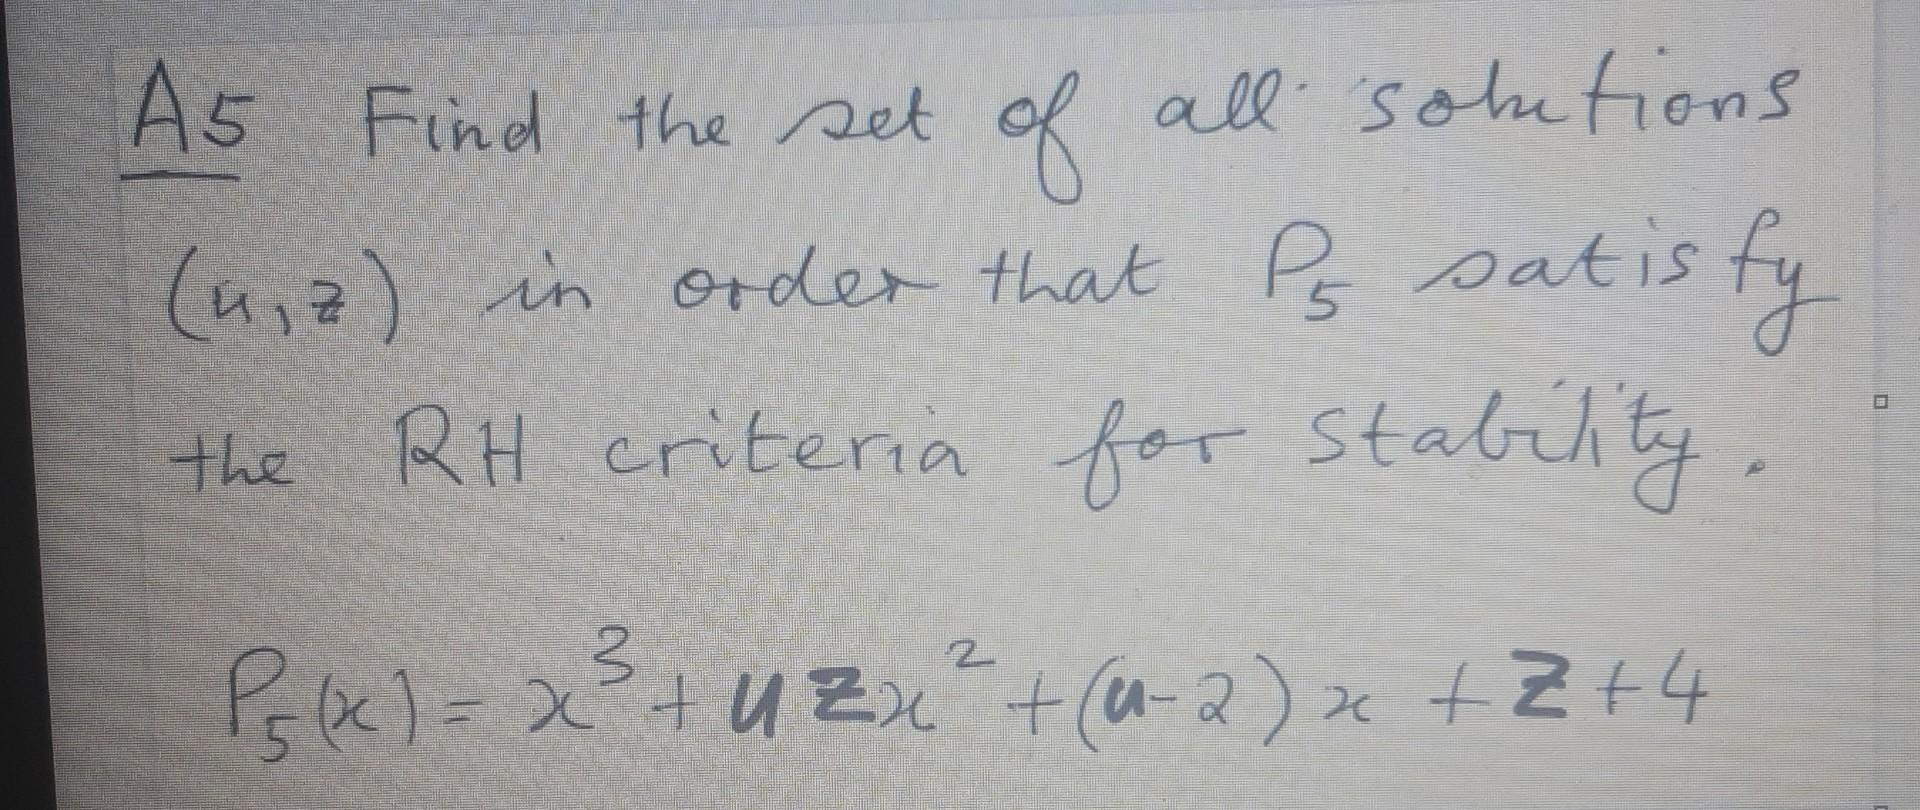 A5 Find the set of all solutions
(u,z) in order that P₅ satisfy
the RH criteria for stability.
P₅(x) = x³ + uzx² + (u-2)x + z + 4